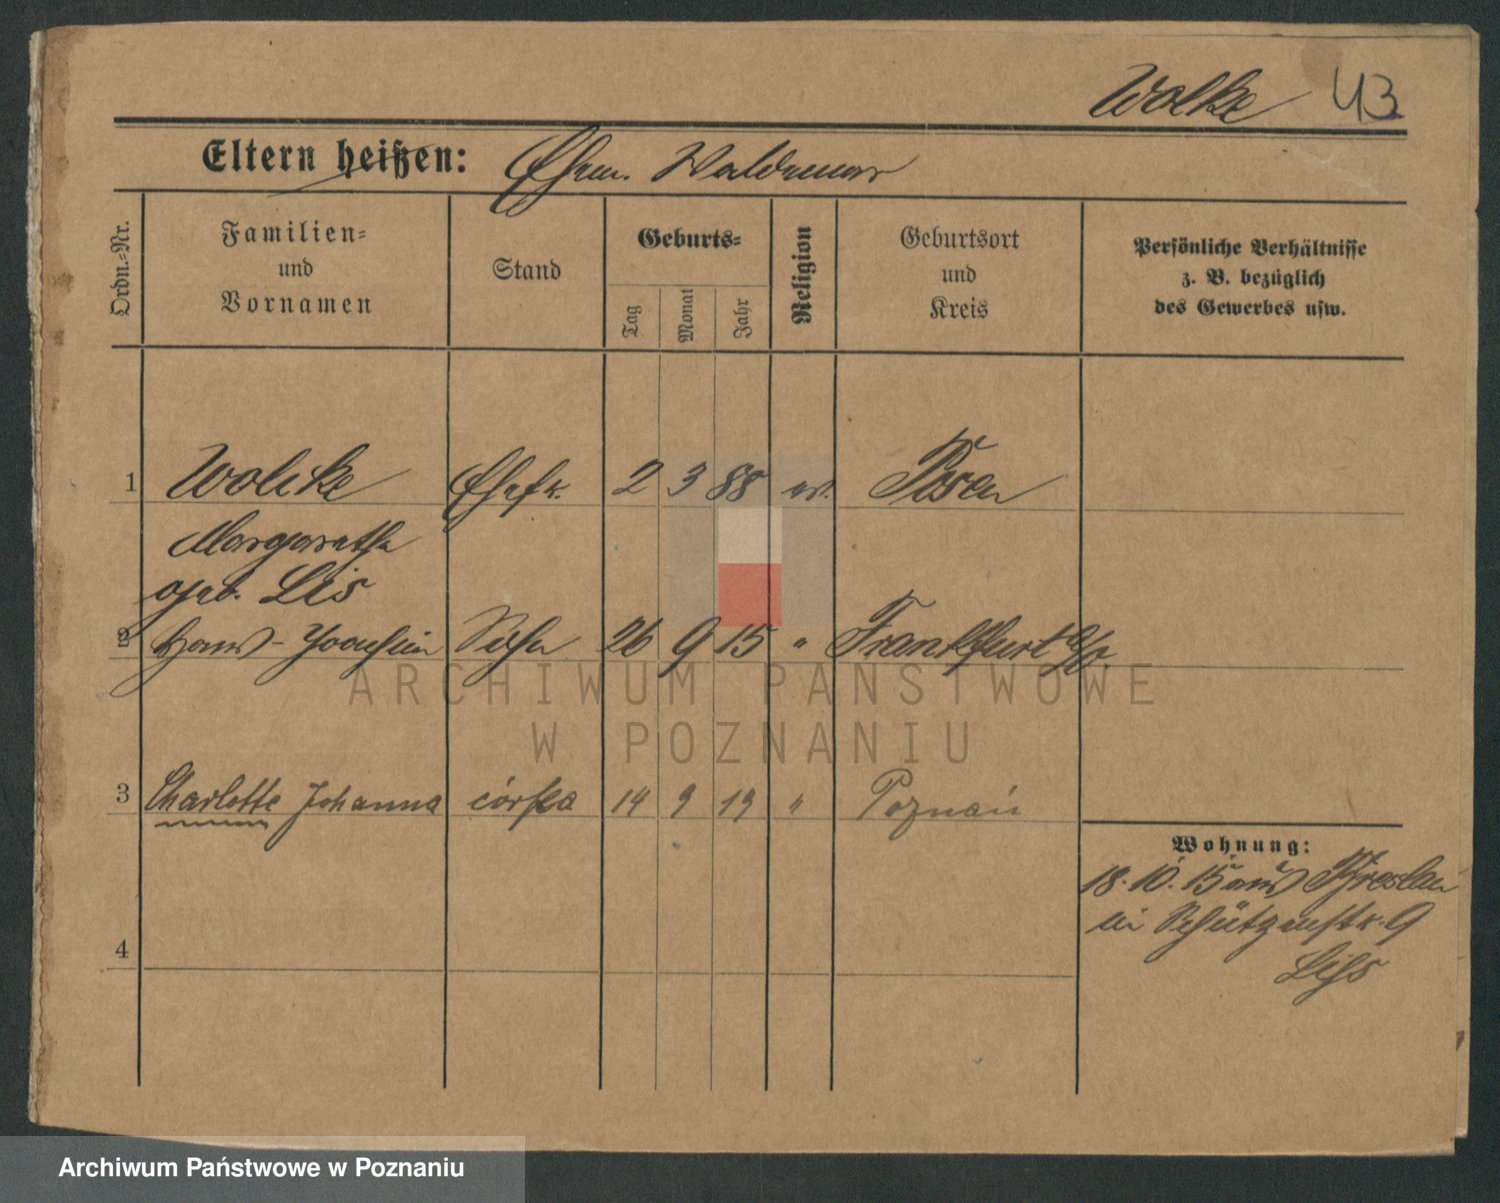 Wolke 43
Eltern heißen: Ehem. Waldemar
Ordn.-Nr.
Familien-
und
Vornamen
Stand
Geburts-
Tag
Monat
Jahr
Religion
Geburtsort
und
Kreis
Persönliche Verhältnisse
z. B. bezüglich
des Gewerbes usw.
1 Wolke Ehefr. 2 3 88 ev. Posen
Margarethe
geb. Lis
2 Hans-Joachim Sohn 26 9 15 " Frankfurt a/
3 Charlotte Johanna córka 14 9 19 " Poznań
4
Wohnung:
18.10.15 aus Breslau
in Schützenstr. 9
Liss
ARCHIWUM PAŃSTWOWE
W POZNANIU
Archiwum Państwowe w Poznaniu